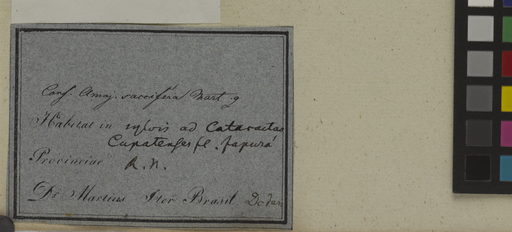 Conf. Amaj. saccifera Mart. g
Habitat in sylvis ad Cataractas
Cupatenses fl. Japurá
Provinciae R. N.
Dr Martius Iter Brasil.